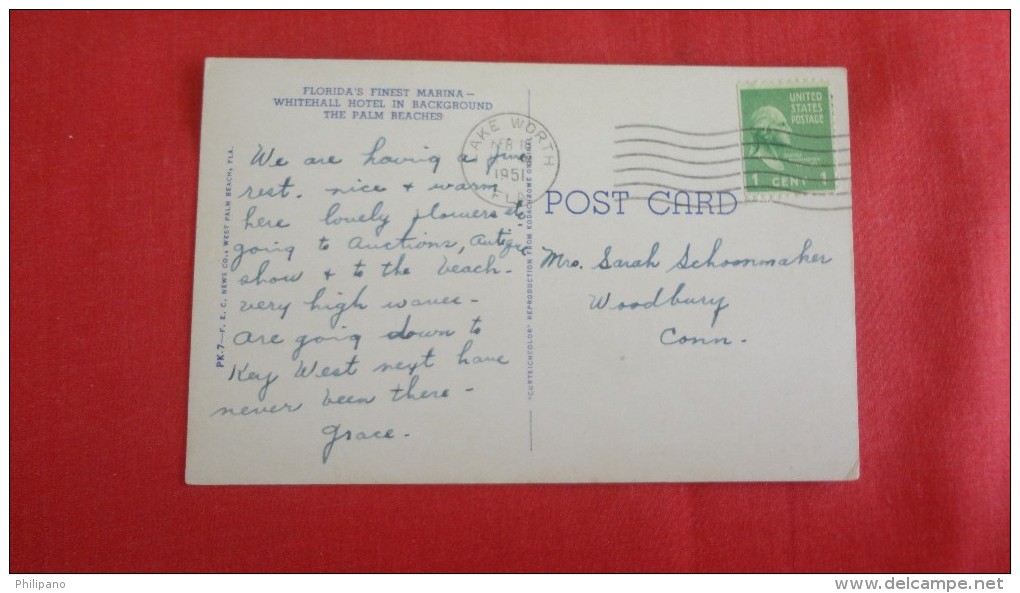 FLORIDA'S FINEST MARINA—
WHITEHALL HOTEL IN BACKGROUND
THE PALM BEACHES
We are having a fine
rest. nice + warm
here lovely flowers etc
going to Auctions, Antique
show + to the beach-
very high waves-
are going down to
Key West next have
never been there-
Grace.
PK-7—F. E. C. NEWS CO., WEST PALM BEACH, FLA.
"CURTEICHCOLOR" REPRODUCTION FROM KODACHROME ORIGINAL
LAKE WORTH
FEB
1951
FLA
UNITED
STATES
POSTAGE
1 CENT 1
POST CARD
Mrs. Sarah Schoonmaker
Woodbury
Conn.
Philipano
www.delcampe.net